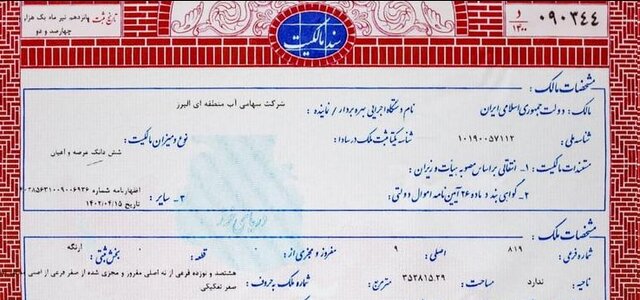 تاریخ ثبت پانزدهم تیر ماه یک هزار
چهارصد و دو
سند مالکیت
۰۹۰۳۴۴ د ۱۳۰۰
مشخصات مالک :
مالک : دولت جمهوری اسلامی ایران نام دستگاه اجرایی بهره بردار / نماینده : شرکت سهامی آب منطقه ای البرز
شناسه ملی : ۱۰۱۹۰۰۵۷۱۱۲ شناسه یکتا ثبت ملک در سادا : نوع و میزان مالکیت :
شش دانگ عرصه و اعیان
مستندات مالکیت : ۱- انتقالی بر اساس مصوبه هیأت وزیران :
۲- گواهی بند د ماده ۲۶ آیین نامه اموال دولتی : ۳- سایر : اظهارنامه شماره
تاریخ ۱۴۰۲/۰۴/۱۵
مشخصات ملک :
شماره فرعی : ۸۱۹ اصلی : ۹ مفروز و مجزی از : قطعه : بخش ثبتی : ارنگه
ناحیه : ندارد مساحت : ۳۵۲۸۱۵.۲۹ مترمربع شماره ملک به حروف : هشتصد و نوزده فرعی از نه اصلی مفروز و مجزی شده از صفر فرعی از اصلی
صفر تفکیکی